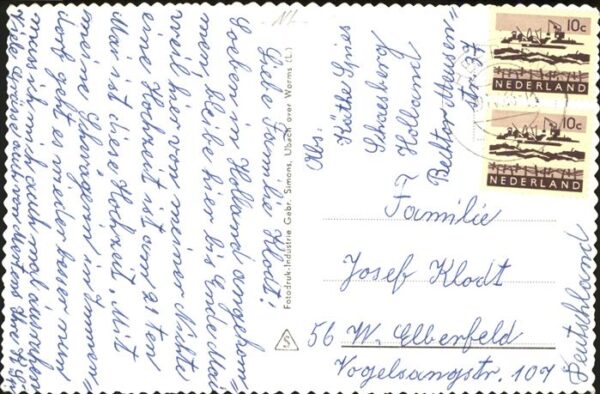 Liebe Familie Klodt!
Soeben in Holland angekom=
men. Bleibe hier bis Ende Mai
weil hier von meiner Nichte
eine Hochzeit ist am 21ten
Mai ist die Hochzeit. Mit
meine Schwägerin in Immen=
dorf geht es wieder besser nur
muss ich mich auch mal ausruhen
Viele Grüsse auch von
Fotodruk-Industrie Gebr. Simons, Ubach over Worms (L.)
S
Abs:
Käthe Spies
Schaesberg
Holland
Str. 37
10c
NEDERLAND
10c
NEDERLAND
Familie
Josef Klodt
56 W. Elberfeld
Vogelsangstr. 107
Deutschland